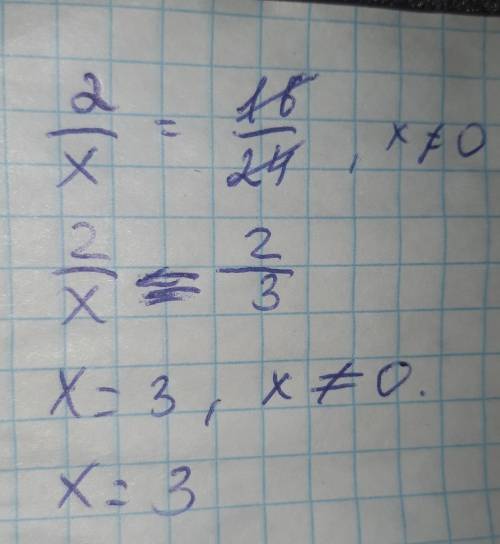 2/x = 16/24, x ≠ 0
2/x = 2/3
x = 3, x ≠ 0.
x = 3